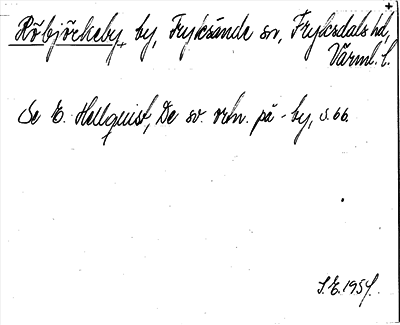 +
Röbjörkeby, by, Fryksände sn, Fryksdals hd,
Värml. l.
Se E. Hellquist, De sv. ortn. på -by, s. 66
S.E. 1954.